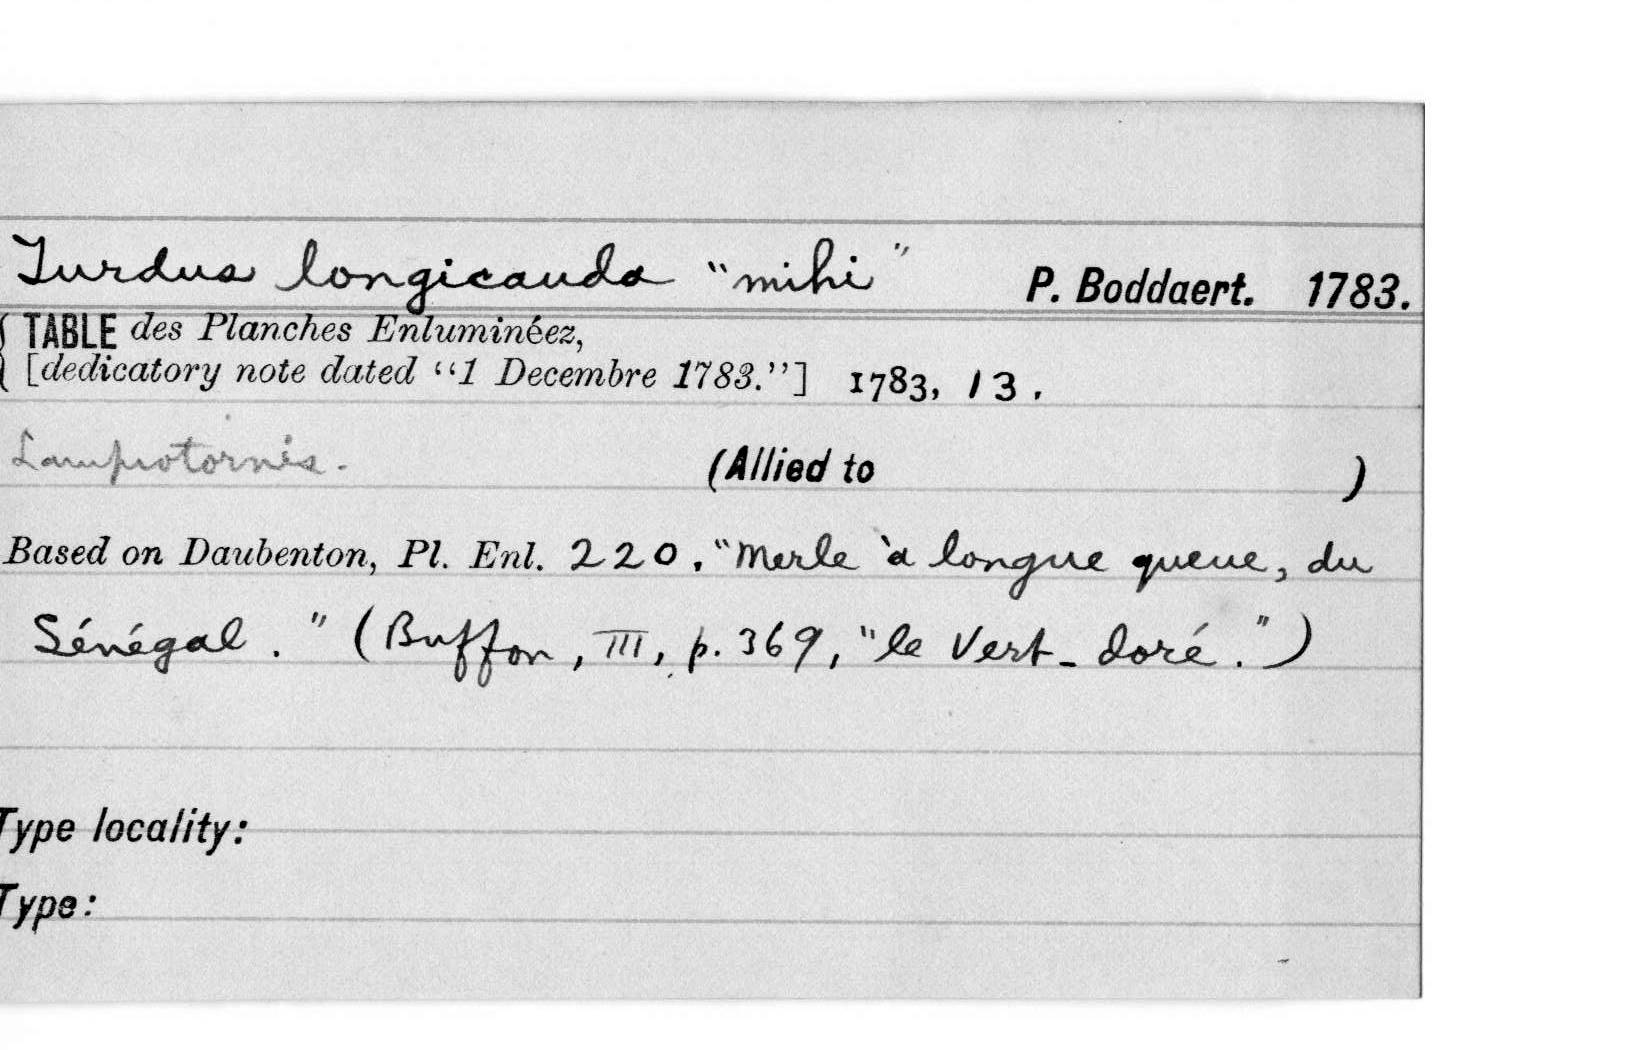 Turdus longicauda "mihi" P. Boddaert. 1783.
TABLE des Planches Enluminéez,
[dedicatory note dated "1 Decembre 1783."] 1783, 13.
Lamprotornis. (Allied to )
Based on Daubenton, Pl. Enl. 220. "Merle à longue queue, du
Sénégal." (Buffon, III, p. 369, "le Vert-doré.")
Type locality:
Type: